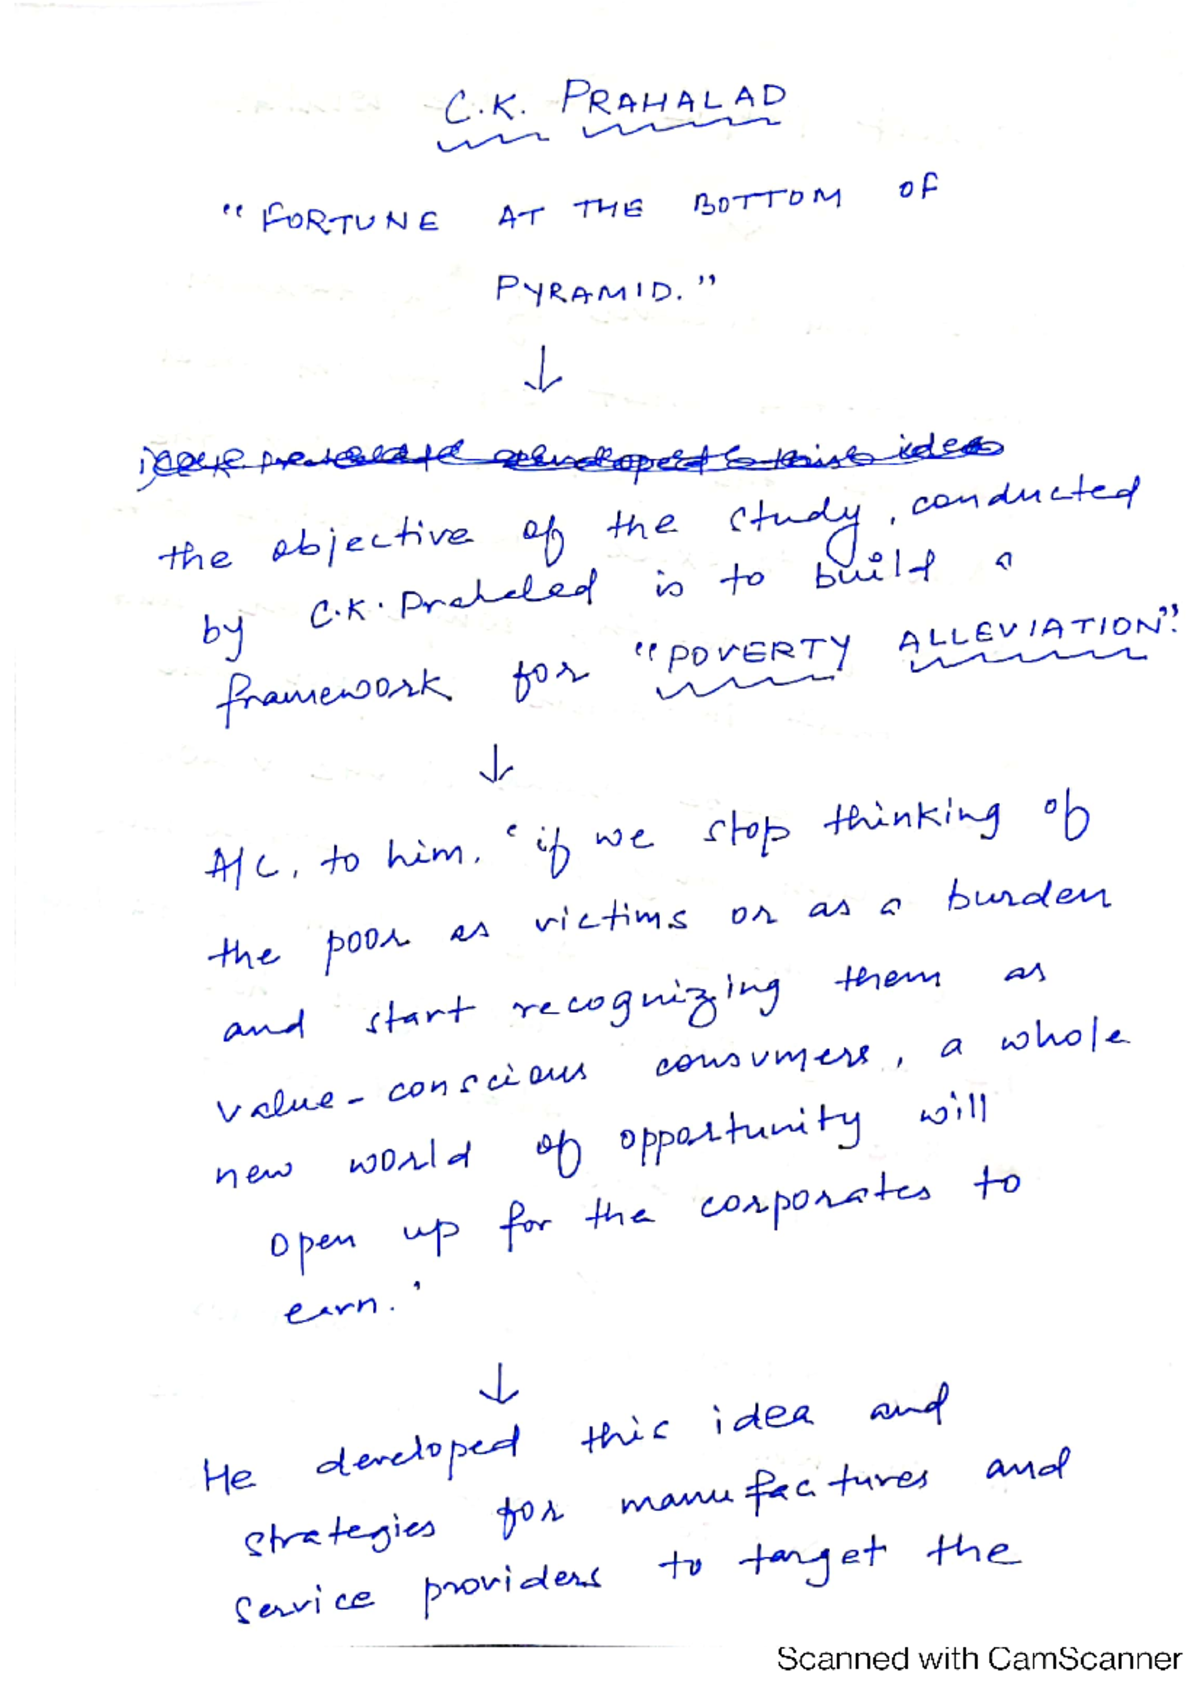 C.K. PRAHALAD
"FORTUNE AT THE BOTTOM OF
PYRAMID."
↓
developed this idea
the objective of the study, conducted
by C.K. Prahalad is to build a
framework for "POVERTY ALLEVIATION".
↓
A/C, to him, 'if we stop thinking of
the poor as victims or as a burden
and start recognizing them as
value-conscious consumers, a whole
new world of opportunity will
open up for the corporates to
earn.'
↓
He developed this idea and
strategies for manufactures and
service providers to target the
Scanned with CamScanner